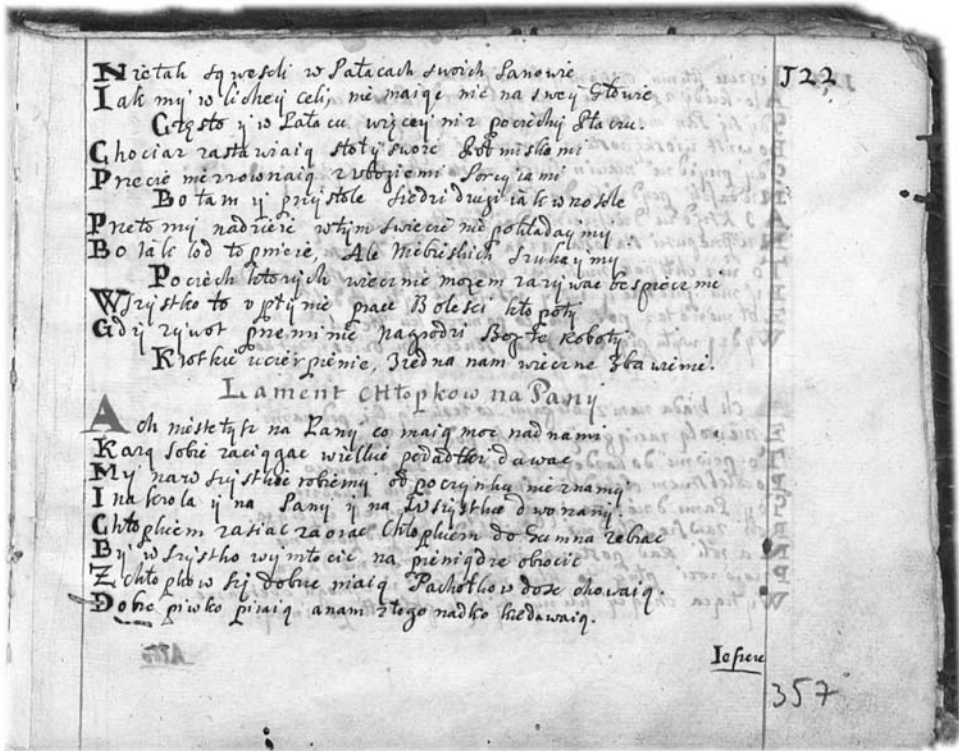 Nietak są weseli w Pałacach swoich Panowie
J22
Iak my w lichey celi, nie maiąc nic na swey Głowie
Często y w Pałacu więcey niz pociechy Płaczu.
Chociaz zastawiaią stoły swoie Pół miskami
Przecie niezrownaią z vbogiemi Porcyiami
Bo tam y przystole siedzi drugi iak w
Przeto my nadzieie wtym swiecie nie pokładaymy
Bo iak lod to Ale Niebieskich szukaymy
Pociech ktorych wiecznie mozem zazywac bespiecznie
Wszystko to vpłynie prace Bolesci kłopoty
Gdy zywot przeminie nagrodzi Bog te Roboty
Krotkie vcierpienie, Ziedna nam wieczne Zbawienie.
Lament Chłopkow na Pany
Ach niestetysz na Pany co maią moc nad nami
Kazą sobie zaciągac wielkie podadki dawac
My nawszystkie robiemy odpoczynku nieznamy
I na krola y na Pany y na Wszystkie dworzany
Chłopkiem zasiac zaorac Chłopkiem do Gumna zebrac
By wszystko wymłocic na pieniądze obrocic
Z chłopkow sij dobrze maią Pachołkow dosc chowaią.
Dobre piwko piiaią anam złego nadko kiedawaią.
Ieszcze
357